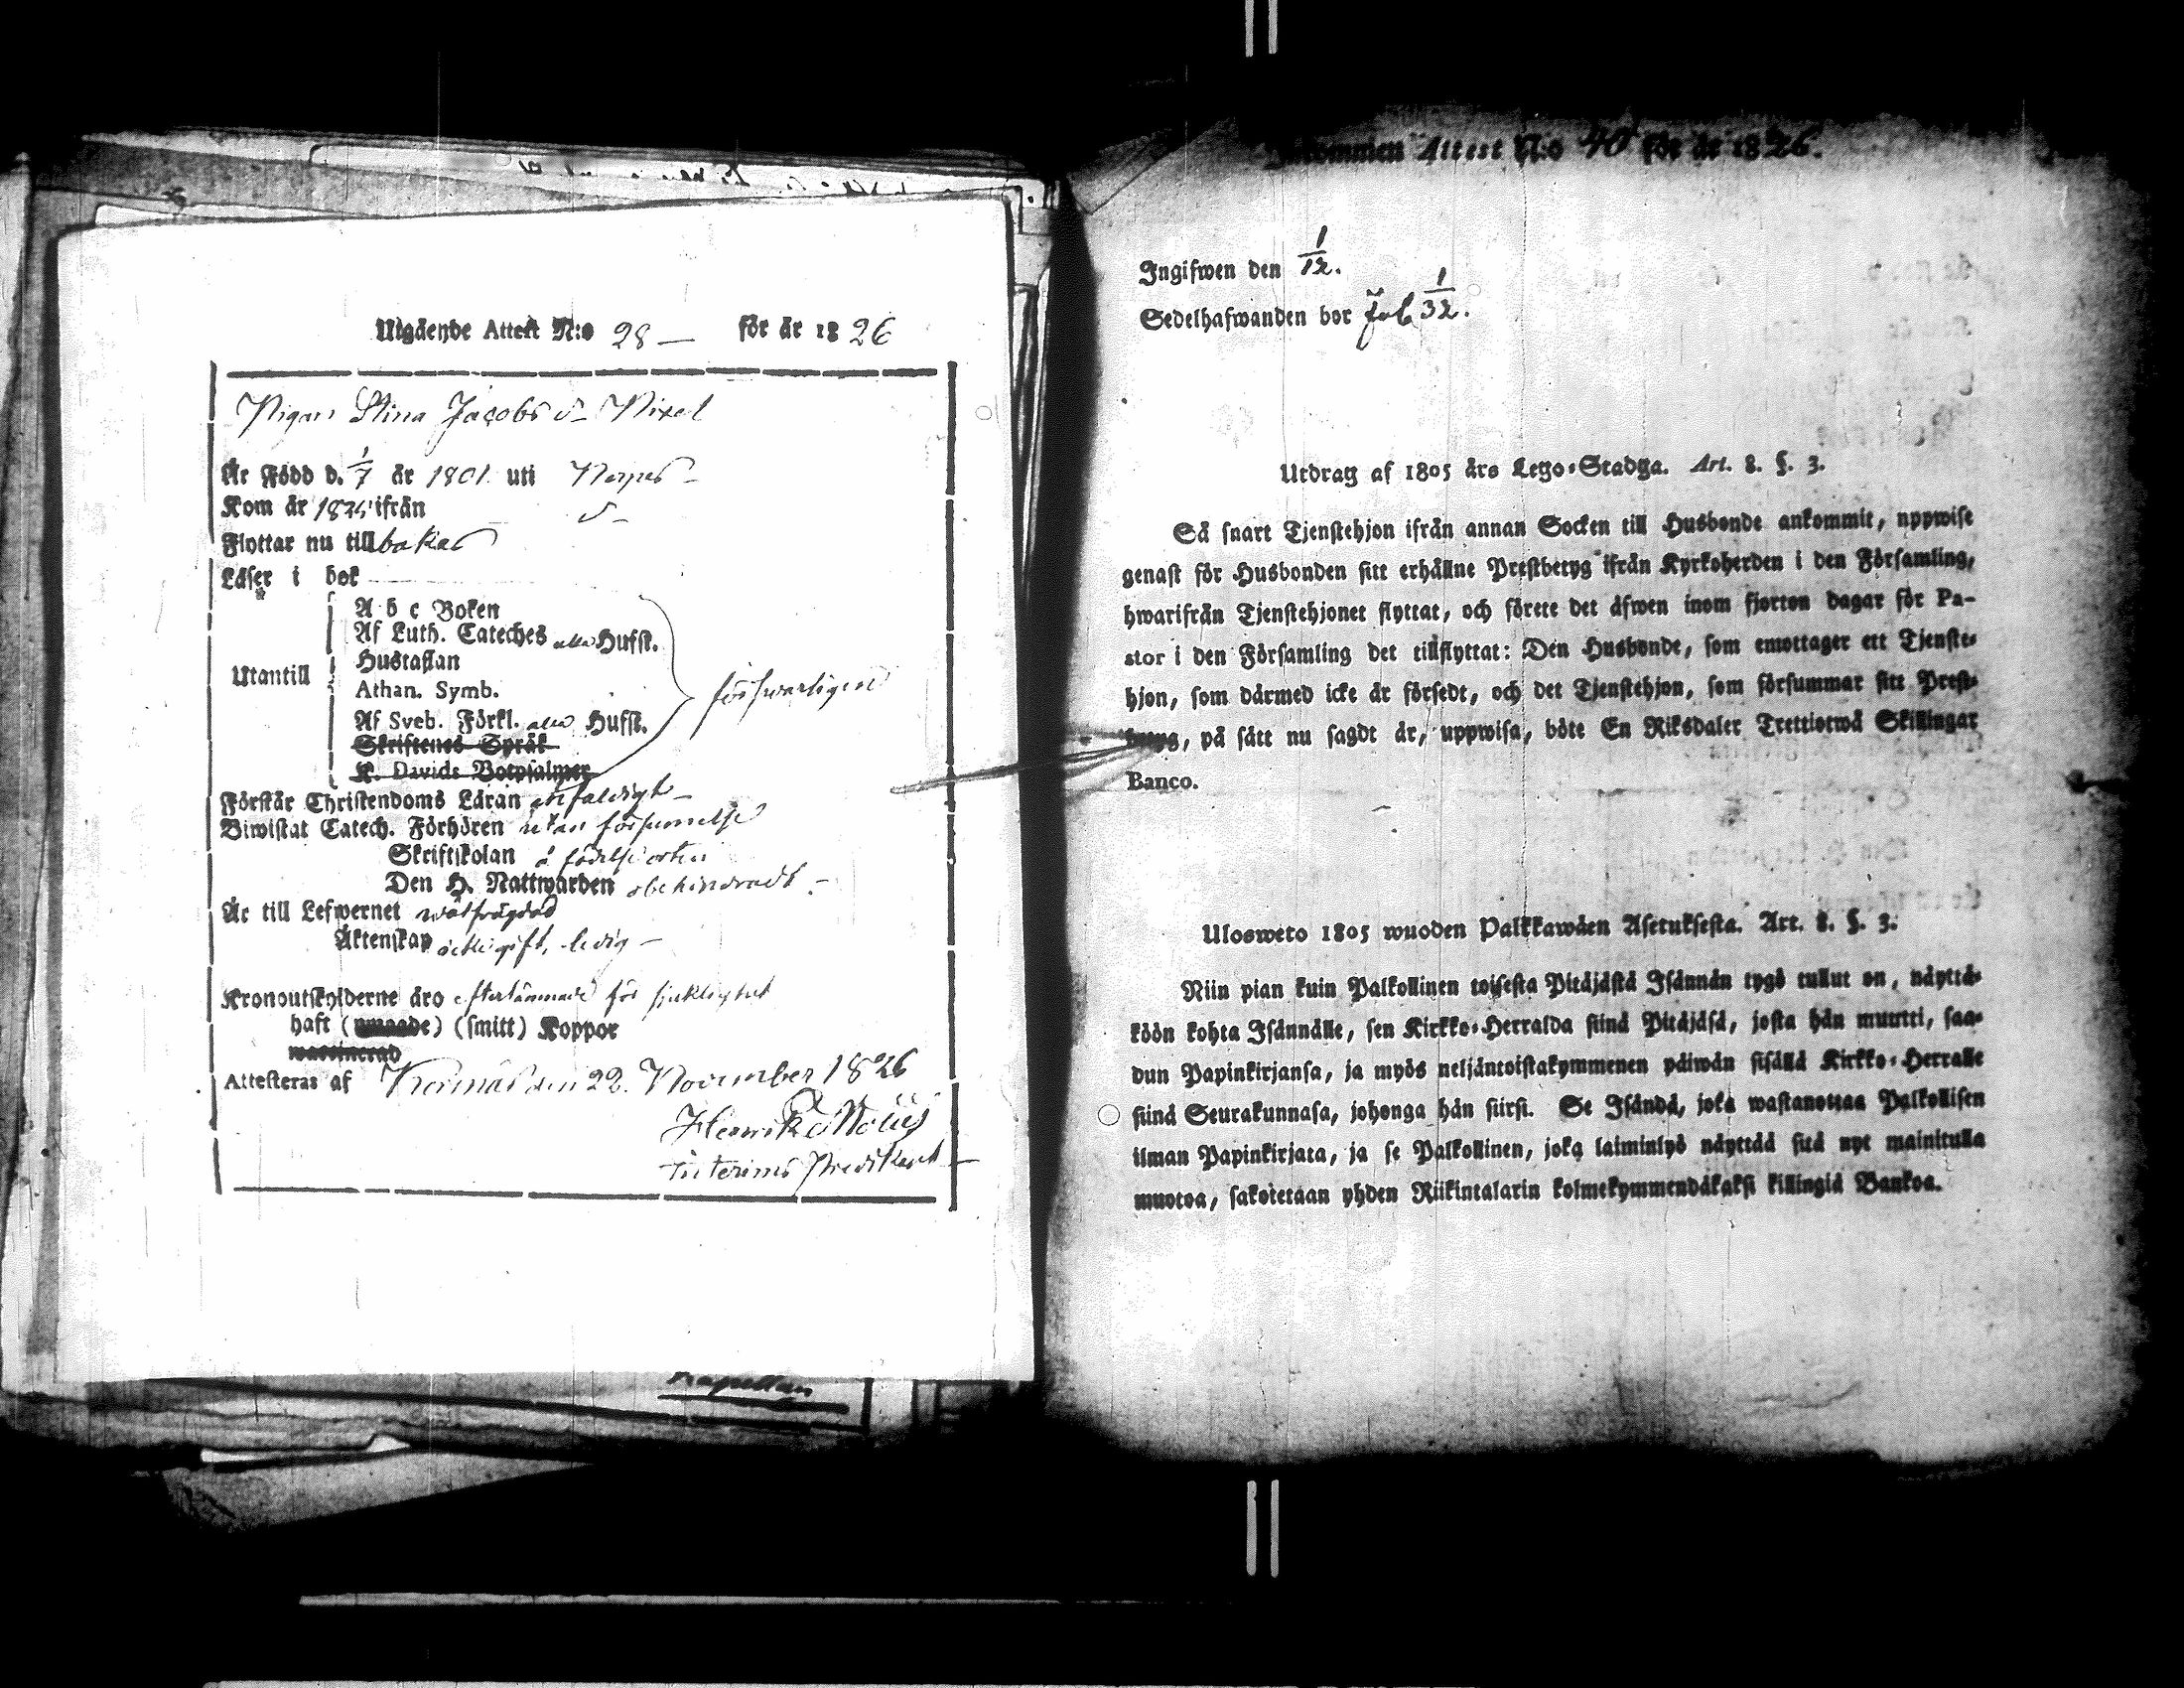 Utgående Attest N:o 28 — för år 1826
Pigan Stina Jacobs d– Pixel
Är Född d. 1/7 år 1801 uti Nerpes –
Kom år 1825 ifrån d–
Flyttar nu tillbakas
Läser i bok
A b c Boken
Af Luth. Cateches alla Hufst.
Hustaflan
Utantill
Athan. Symb.
försvarligen
Af Sveb. Förkl. alla Hufst.
Skriftenes Språk
K. Davids Botpsalmer
Förstår Christendoms Läran enfaldigt –
Biwistat Catech. Förhören utan försummelse
Skriftskolan å födelseorten
Den H. Nattwarden obehindradt –
Är till Lefwernet wälfrägdad
Äktenskap icke gift, ledig –
Kronoutskylderne äro efterlämnade för sjuklighet
haft () (smitt) Koppor
waccinerad
Attesteras af den 22. November 1826
Henrik
Interims Predikant –
Kapellan
Inkommen Attest N:o 40 för år 1826.
Ingifwen den 1/12.
Sedelhafwanden bor 1/32.
Utdrag af 1805 års Lego-Stadga. Art. 8. §. 3.
Så snart Tjenstehjon ifrån annan Socken till Husbonde ankommit, uppwise
genast för Husbonden sitt erhållne Prestbetyg ifrån Kyrkoherden i den Församling,
hwarifrån Tjenstehjonet flyttat, och förete det äfwen inom fjorton dagar för Pa-
stor i den Församling det tillflyttat: Den Husbonde, som emottager ett Tjenste-
hjon, som därmed icke är försedt, och det Tjenstehjon, som försummar sitt Prest-
betyg, på sätt nu sagdt är, uppwisa, böte En Riksdaler Trettiotwå Skillingar
Banco.
Ulosweto 1805 wuoden Palkkawäen Asetuksesta. Art. 8. §. 3.
Niin pian kuin Palkollinen toisesta Pitäjästä Isännän tygö tullut on, näyttä-
köön kohta Isännälle, sen Kirkko-Herralda siinä Pitäjäsä, josta hän muutti, saa-
dun Papinkirjansa, ja myös neljäntoistakymmenen päiwän sisällä Kirkko-Herralle
siinä Seurakunnasa, johonga hän siirsi. Se Isändä, joka wastanottaa Palkollisen
ilman Papinkirjata, ja se Palkollinen, joka laiminlyö näyttää sitä nyt mainitulla
muotoa, sakotetaan yhden Riikintalarin kolmekymmendäkaksi killingiä Bankoa.